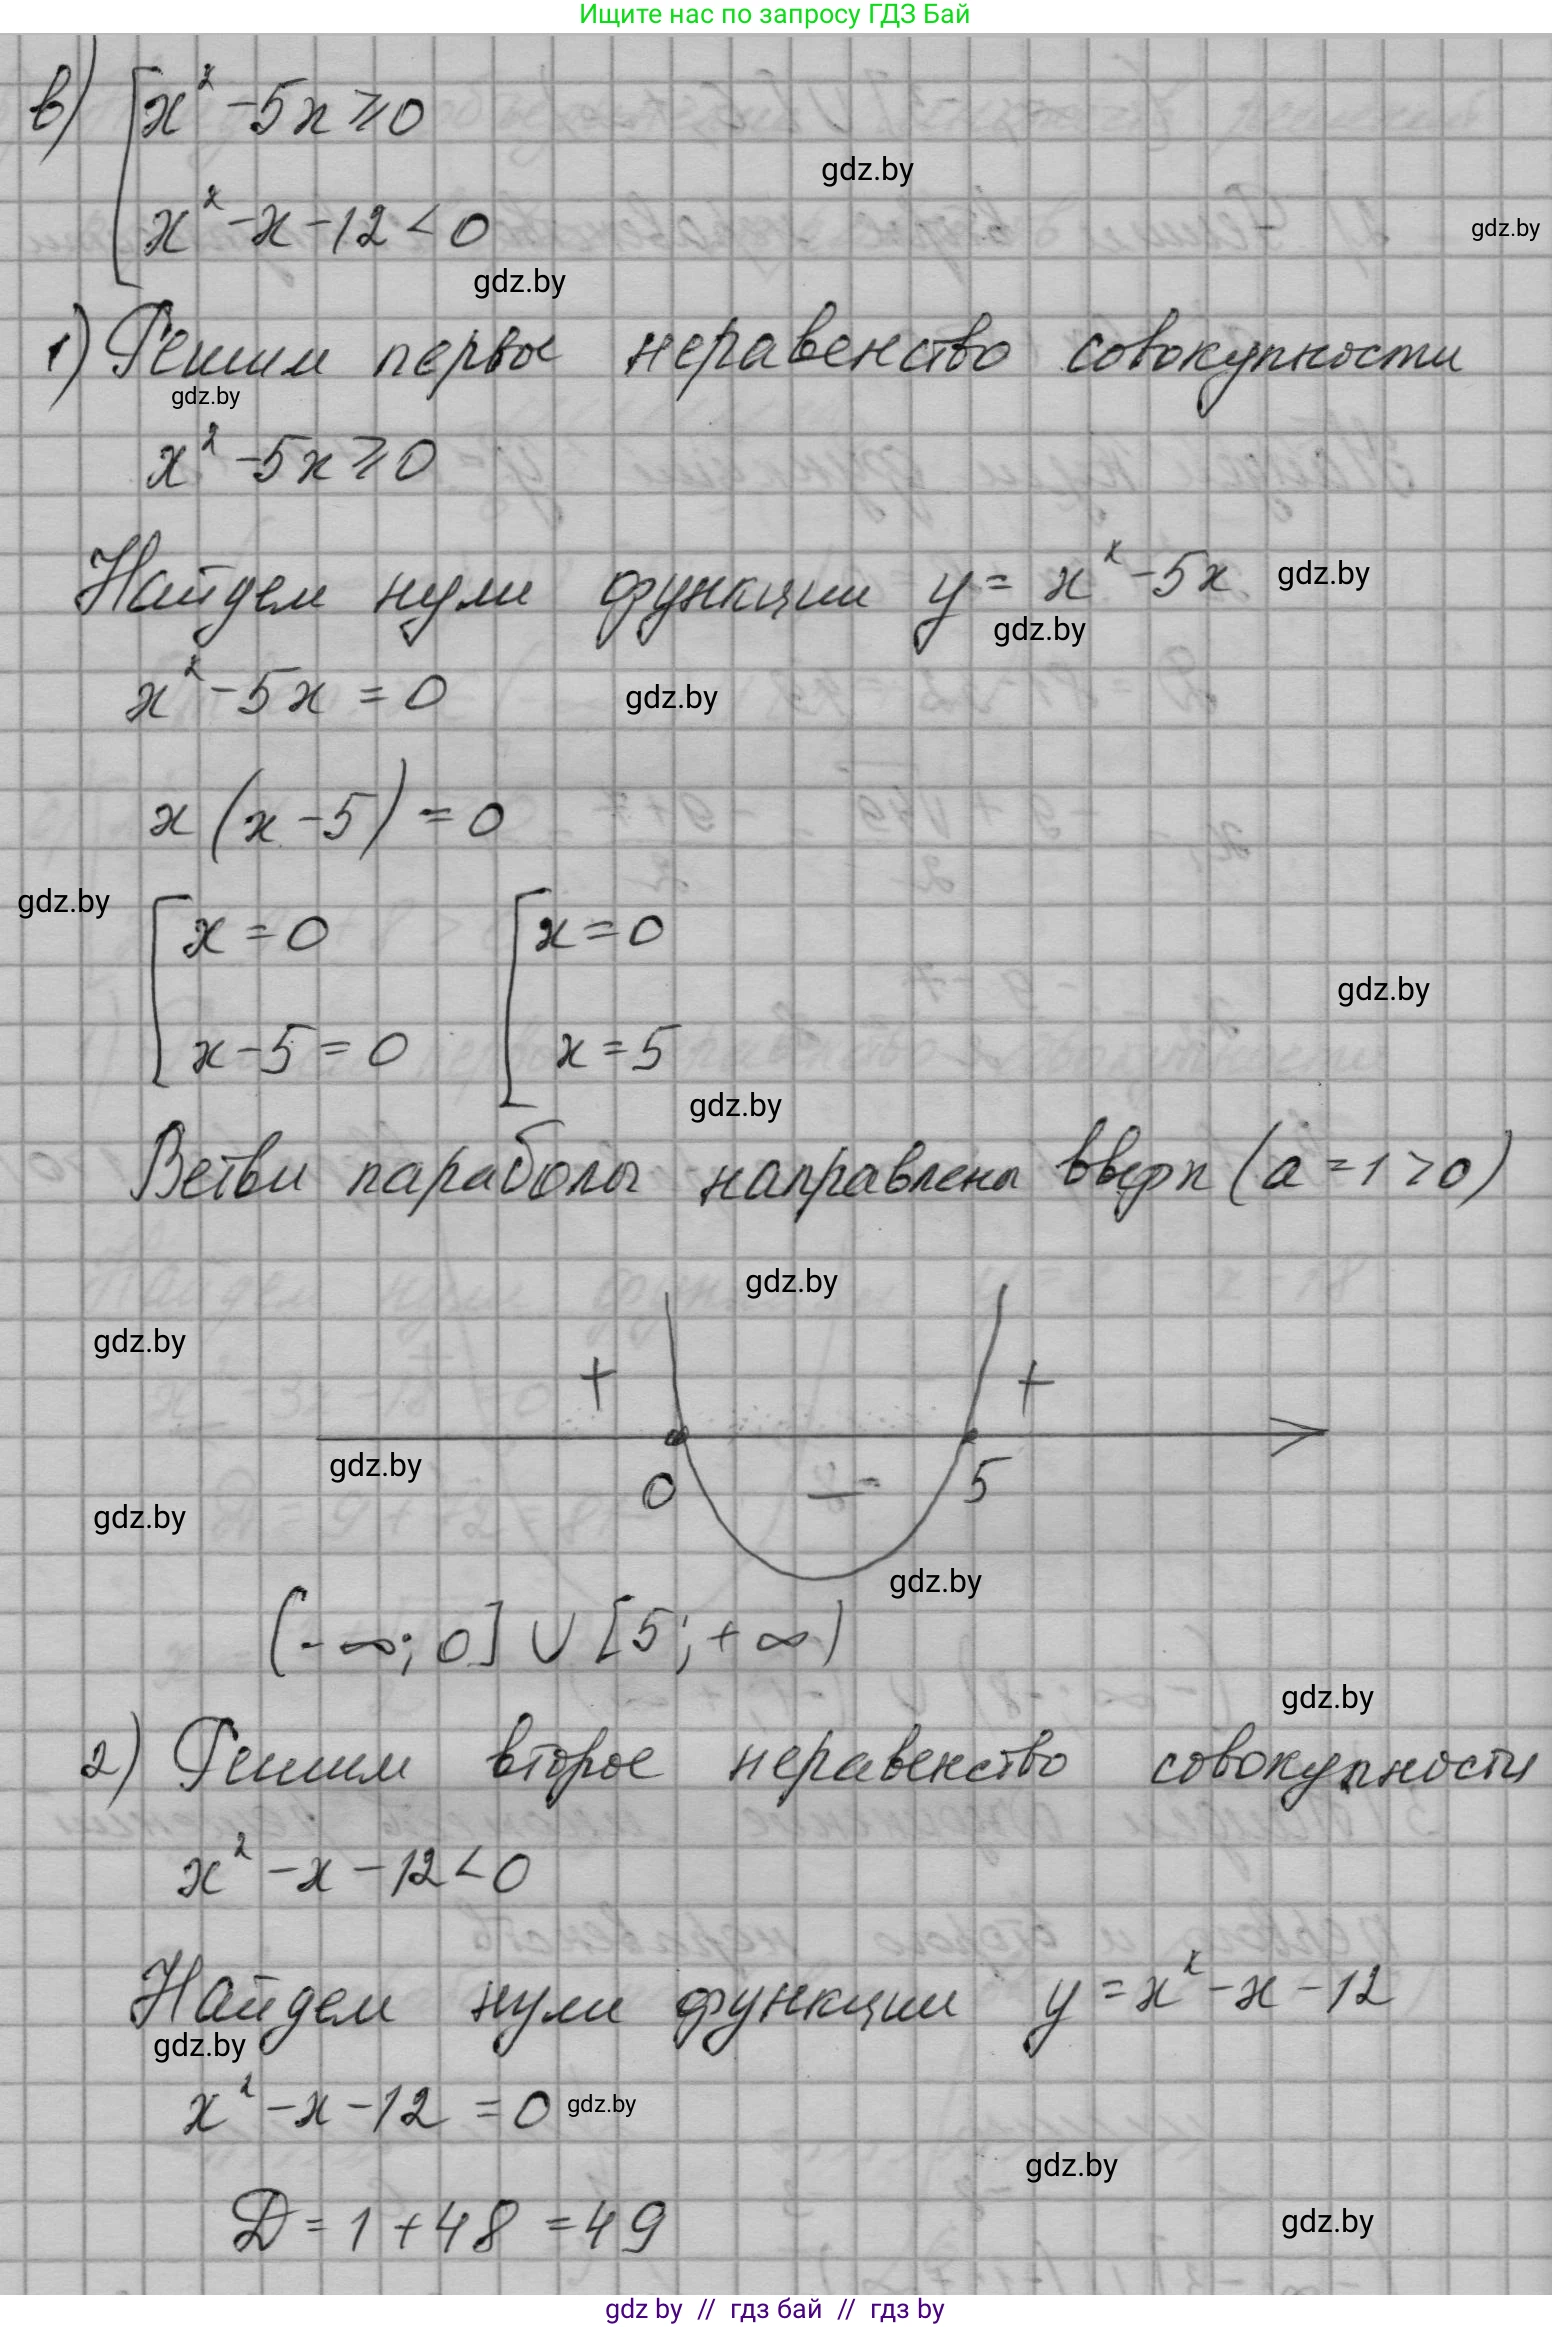 Ищите нас по запросу ГДЗ Бай
в) [ x² - 5x ≥ 0
gdz.by
x² - x - 12 < 0
gdz.by
gdz.by
1) Решим первое неравенство совокупности
gdz.by
x² - 5x ≥ 0
Найдем нули функции y = x² - 5x
gdz.by
gdz.by
x² - 5x = 0
gdz.by
x (x - 5) = 0
gdz.by
[ x = 0 [ x = 0
gdz.by
x - 5 = 0 x = 5
gdz.by
Ветви параболы направлены вверх (a = 1 > 0)
gdz.by
gdz.by
+ +
gdz.by
0 - 5
gdz.by
gdz.by
(-∞; 0] ∪ [5; +∞)
gdz.by
2) Решим второе неравенство совокупности
x² - x - 12 < 0
Найдем нули функции y = x² - x - 12
gdz.by
x² - x - 12 = 0
gdz.by
gdz.by
D = 1 + 48 = 49
gdz.by
gdz by // гдз бай // гдз by